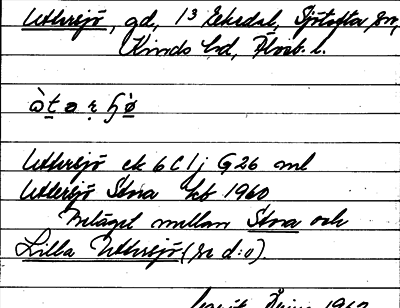 Uttersjö, gd, 1³ Ekedal, Sjötofta sn,
Kinds hd, Älvsb. l.
Uttersjö ek 6 C 1 j G 26 ml
Uttersjö Stora kb 1960
Beläget mellan Stora och
Lilla Uttersjö (se d:o).
1960